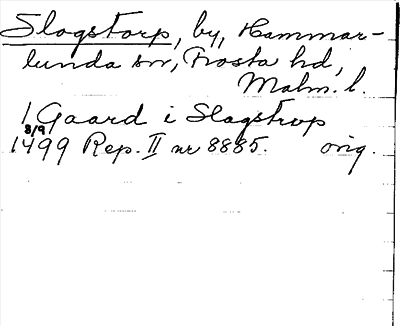 Slogstorp, by, Hammar-
lunda sn, Frosta hd,
Malm. l.
1 Gaard i Slagstrvp
8/9
1499 Rep. II nr 8885. orig.